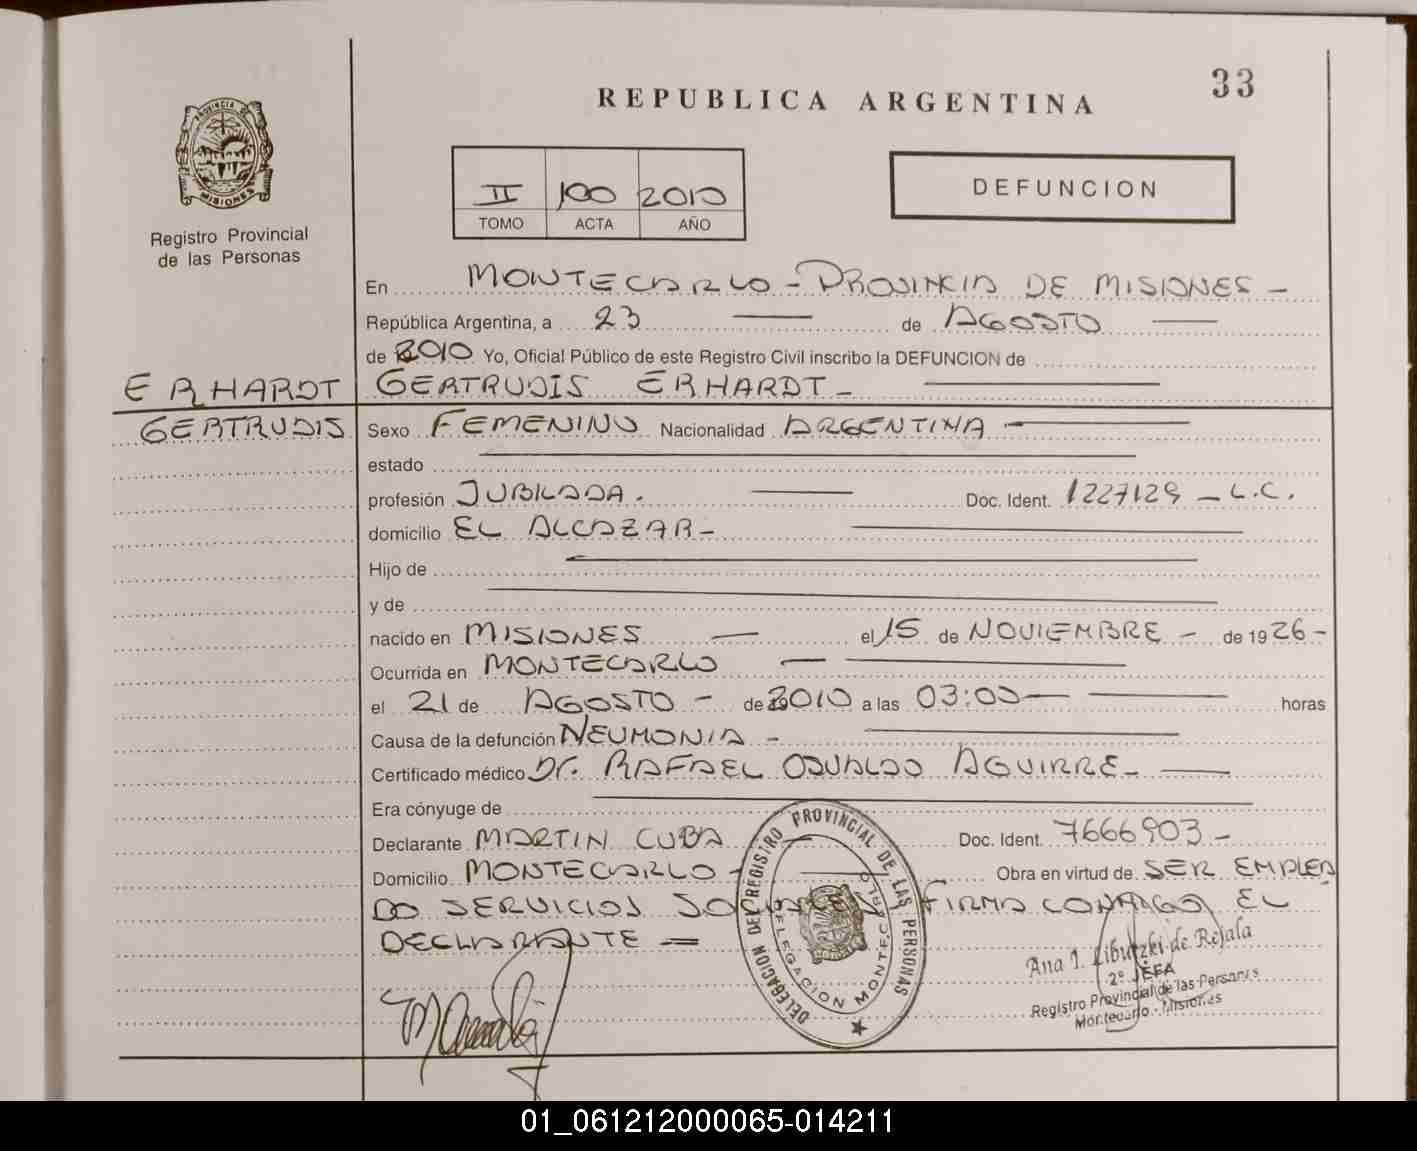 33
REPUBLICA ARGENTINA
PROVINCIA DE
MISIONES
Registro Provincial
de las Personas
II 100 2010
TOMO ACTA AÑO
DEFUNCION
En MONTECARLO - PROVINCIA DE MISIONES -
República Argentina, a 23 de AGOSTO
de 2010 Yo, Oficial Público de este Registro Civil inscribo la DEFUNCION de
ERHARDT GERTRUDIS ERHARDT -
GERTRUDIS Sexo FEMENINO Nacionalidad ARGENTINA -
estado
profesión JUBILADA. Doc. Ident. 1227129 - L.C.
domicilio EL ALCAZAR -
Hijo de
y de
nacido en MISIONES el 15 de NOVIEMBRE - de 1926 -
Ocurrida en MONTECARLO
el 21 de AGOSTO - de 2010 a las 03:00 horas
Causa de la defunción NEUMONIA -
Certificado médico Dr. RAFAEL OSVALDO AGUIRRE -
Era cónyuge de
Declarante MARTIN CUBA Doc. Ident. 7666903 -
Domicilio MONTECARLO - Obra en virtud de SER EMPLEA
DO SERVICIOS FIRMA CONMIGO EL
DECLARANTE =
DELEGACION DEL REGISTRO PROVINCIAL DE LAS PERSONAS
DELEGACION MONTECARLO
Ana I. Libutzki de Rejala
2° JEFA
Registro Provincial de las Personas
Montecarlo - Misiones
01_061212000065-014211